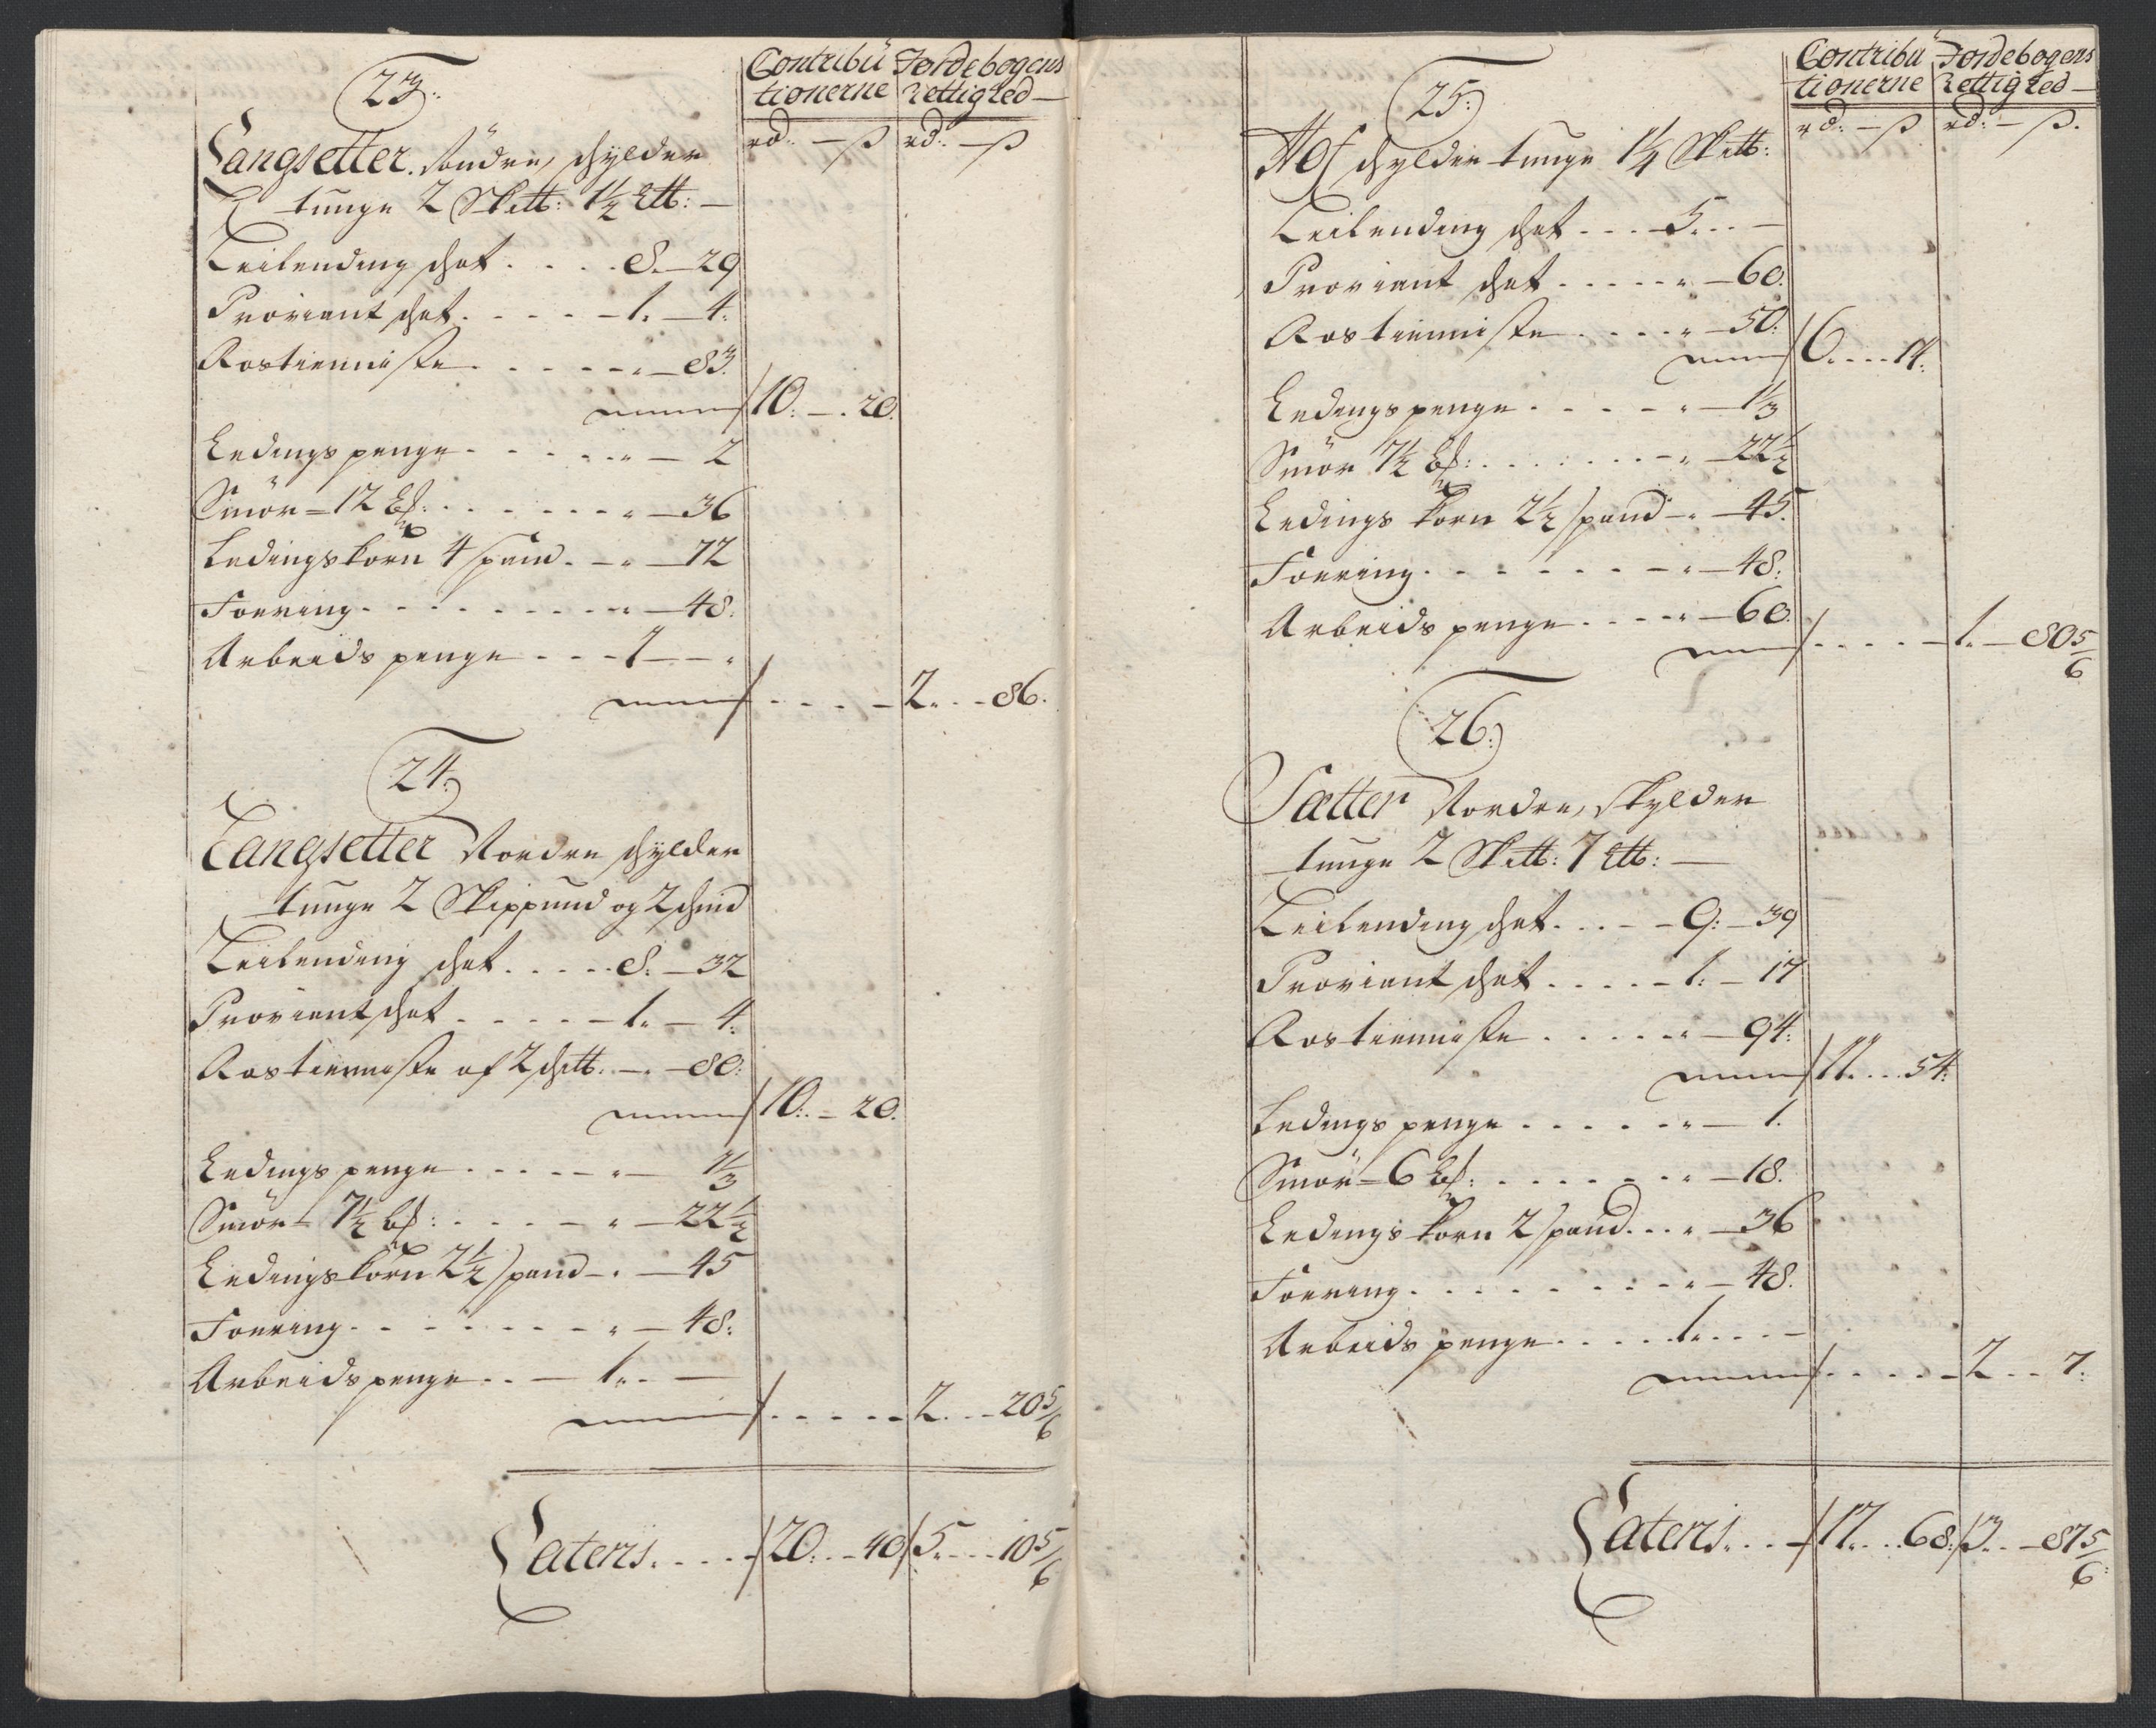 Contribu Jordebogens
tionerne Rettighed
rd: — ß rd: — ß
23:
Langsetter Søndre, schylder
tunge 2 Sk℔: 1½ L℔:
Leilending schat .... 8 — 29
Proviant schat ..... 1. — 4:
Rostienniste ..... „ — 83.
10: — 20.
Ledingspenge ..... „ — 2
Smör 12 ..... „ — 36
Ledingskorn 4 spand . „ — 72
Foering ..... „ — 48:
Arbeids penge ... 1 — „
2. — 86.
24:
Langsetter Nordre schylder
tunge 2 Skippund og 2 schind
Leilending schat ..... 8. — 32
Proviant schat ..... 1. — 4:
Rostienniste af 2 sch℔. — „ — 80:
10: — 20.
Ledingspenge ..... „ — 1⅓
Smör 7½ ..... „ — 22½
Ledingskorn 2½ spand — „ — 45
Foering ..... „ — 48:
Arbeidspenge .. — 1. —
2. — 20⅚
Lateris ..... 20. — 40 5. — 10⅚
Contribu Jordebogens
tionerne Rettighed
rd: — ß rd: — ß.
25:
Hof schylder tunge 1¼ Sk℔:
Leilending schat ... 5. —
Proviant schat ..... „ — 60.
Rostienniste ..... „ — 50:
6. — 14.
Ledingspenge ..... „ — 1⅓
Smör 7½ ..... „ — 22½
Ledings korn 2½ spand — „ — 45.
Foering ..... „ — 48:
Arbeids penge .... „ — 60.
1. — 80⅚
26:
Sætter Nordre, skylder
tunge 2 Sk℔: 7 L℔:
Leilending schat .... 9: — 39
Proviant schat ..... 1: — 17
Rostienniste ..... „ — 94:
11. — 54:
Ledings penge ..... „ — 1.
Smör 6 ..... „ — 18.
Ledings korn 2 spand ... „ — 36
Foering ..... „ — 48.
Arbeids penge .... 1. —
2 — 7.
Lateris ... 17. — 68. 3. — 87⅚